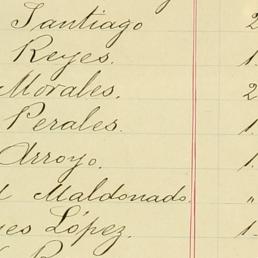 Santiago 2
Reyes. 1
Morales. 2
Perales. 1
Arroyo. 1.
Maldonado. "
López. 1